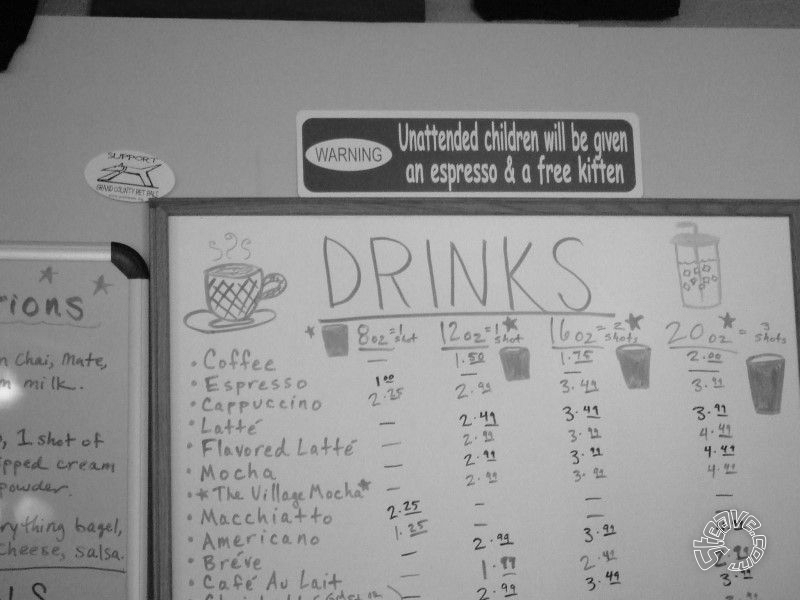 WARNING
Unattended children will be given
an espresso & a free kitten
SUPPORT
GRAND COUNTY PET PALS
DRINKS
8oz=1 shot 12oz=1 shot 16oz=2 shots 20oz=3 shots
• Coffee — 1.50 1.75 2.00
• Espresso 1.00 — — —
• Cappuccino 2.25 2.99 3.49 3.99
• Latté — 2.49 3.49 3.99
• Flavored Latté — 2.99 3.99 4.49
• Mocha — 2.99 3.99 4.49
• ★The Village Mocha★ — 2.99 3.99 4.49
• Macchiatto 2.25 — — —
• Americano 1.25
• Bréve — 2.99 3.99
• Café Au Lait — 2.49
3.49
2.99
ions
chai, mate,
milk.
, 1 shot of
ipped cream
powder.
rything bagel,
cheese, salsa.
Steave.com